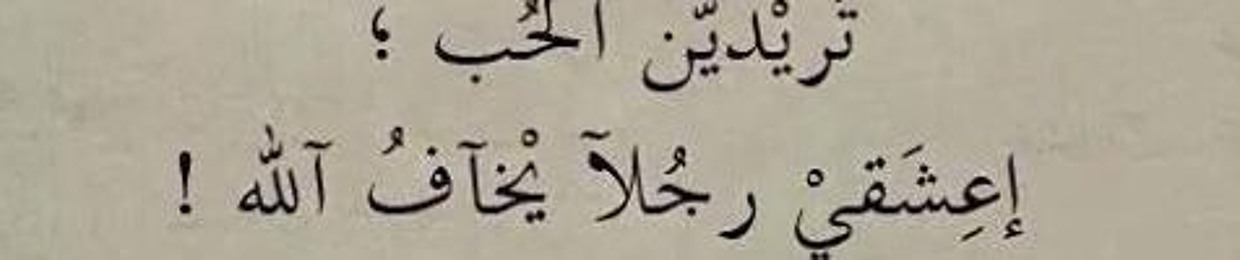 تُريْديّن الحُب ؛
إعِشَقيْ رجُلآ يْخآفُ آلله !